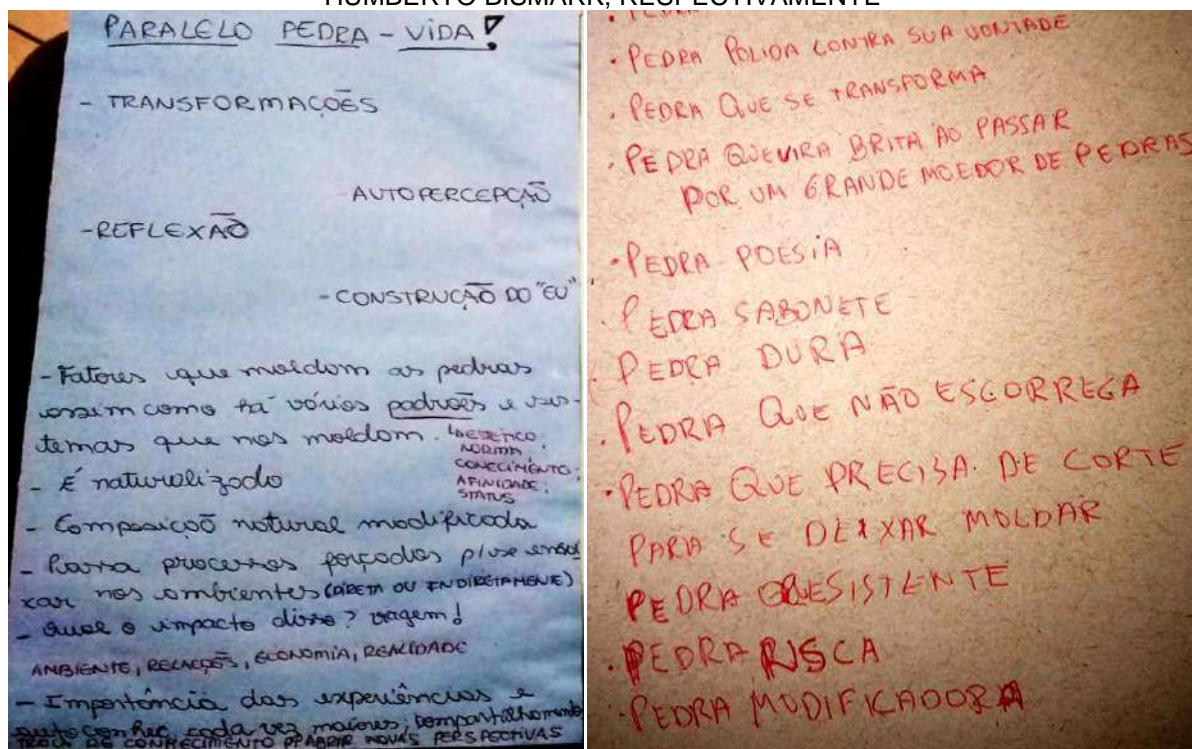 HUMBERTO BISMARK, RESPECTIVAMENTE
PARALELO PEDRA - VIDA!
- TRANSFORMAÇÕES
- AUTOPERCEPÇÃO
- REFLEXÃO
- CONSTRUÇÃO DO "EU"
- Fatores que moldam as pedras
assim como há vários padrões e sis-
temas que nos moldam.
ESTÉTICO;
NORMA;
CONECIMENTO;
AFINIDADE;
STATUS
- É naturalizado
- Composição natural modificada
- Passa processos forçados p/ se encai
xar nos ambientes (DIRETA OU INDIRETAMENE)
- Qual o impacto disso?
AMBIENTE, RELAÇÕES, ECONOMIA, REALIDADE
- Importância das experiências e
auto conhec. cada vez maiores; compartilhamento
TROCA DE CONHECIMENTO P/ ABRIR NOVAS PERSPECTIVAS
· PEDRA POLIDA CONTRA SUA VONTADE
· PEDRA QUE SE TRANSFORMA
· PEDRA QUE VIRA BRITA AO PASSAR
POR UM GRANDE MOEDOR DE PEDRAS
· PEDRA POESIA
· PEDRA SABONETE
· PEDRA DURA
· PEDRA QUE NÃO ESCORREGA
· PEDRA QUE PRECISA DE CORTE
PARA SE DEIXAR MOLDAR
PEDRA RESISTENTE
· PEDRA RISCA
· PEDRA MODIFICADORA